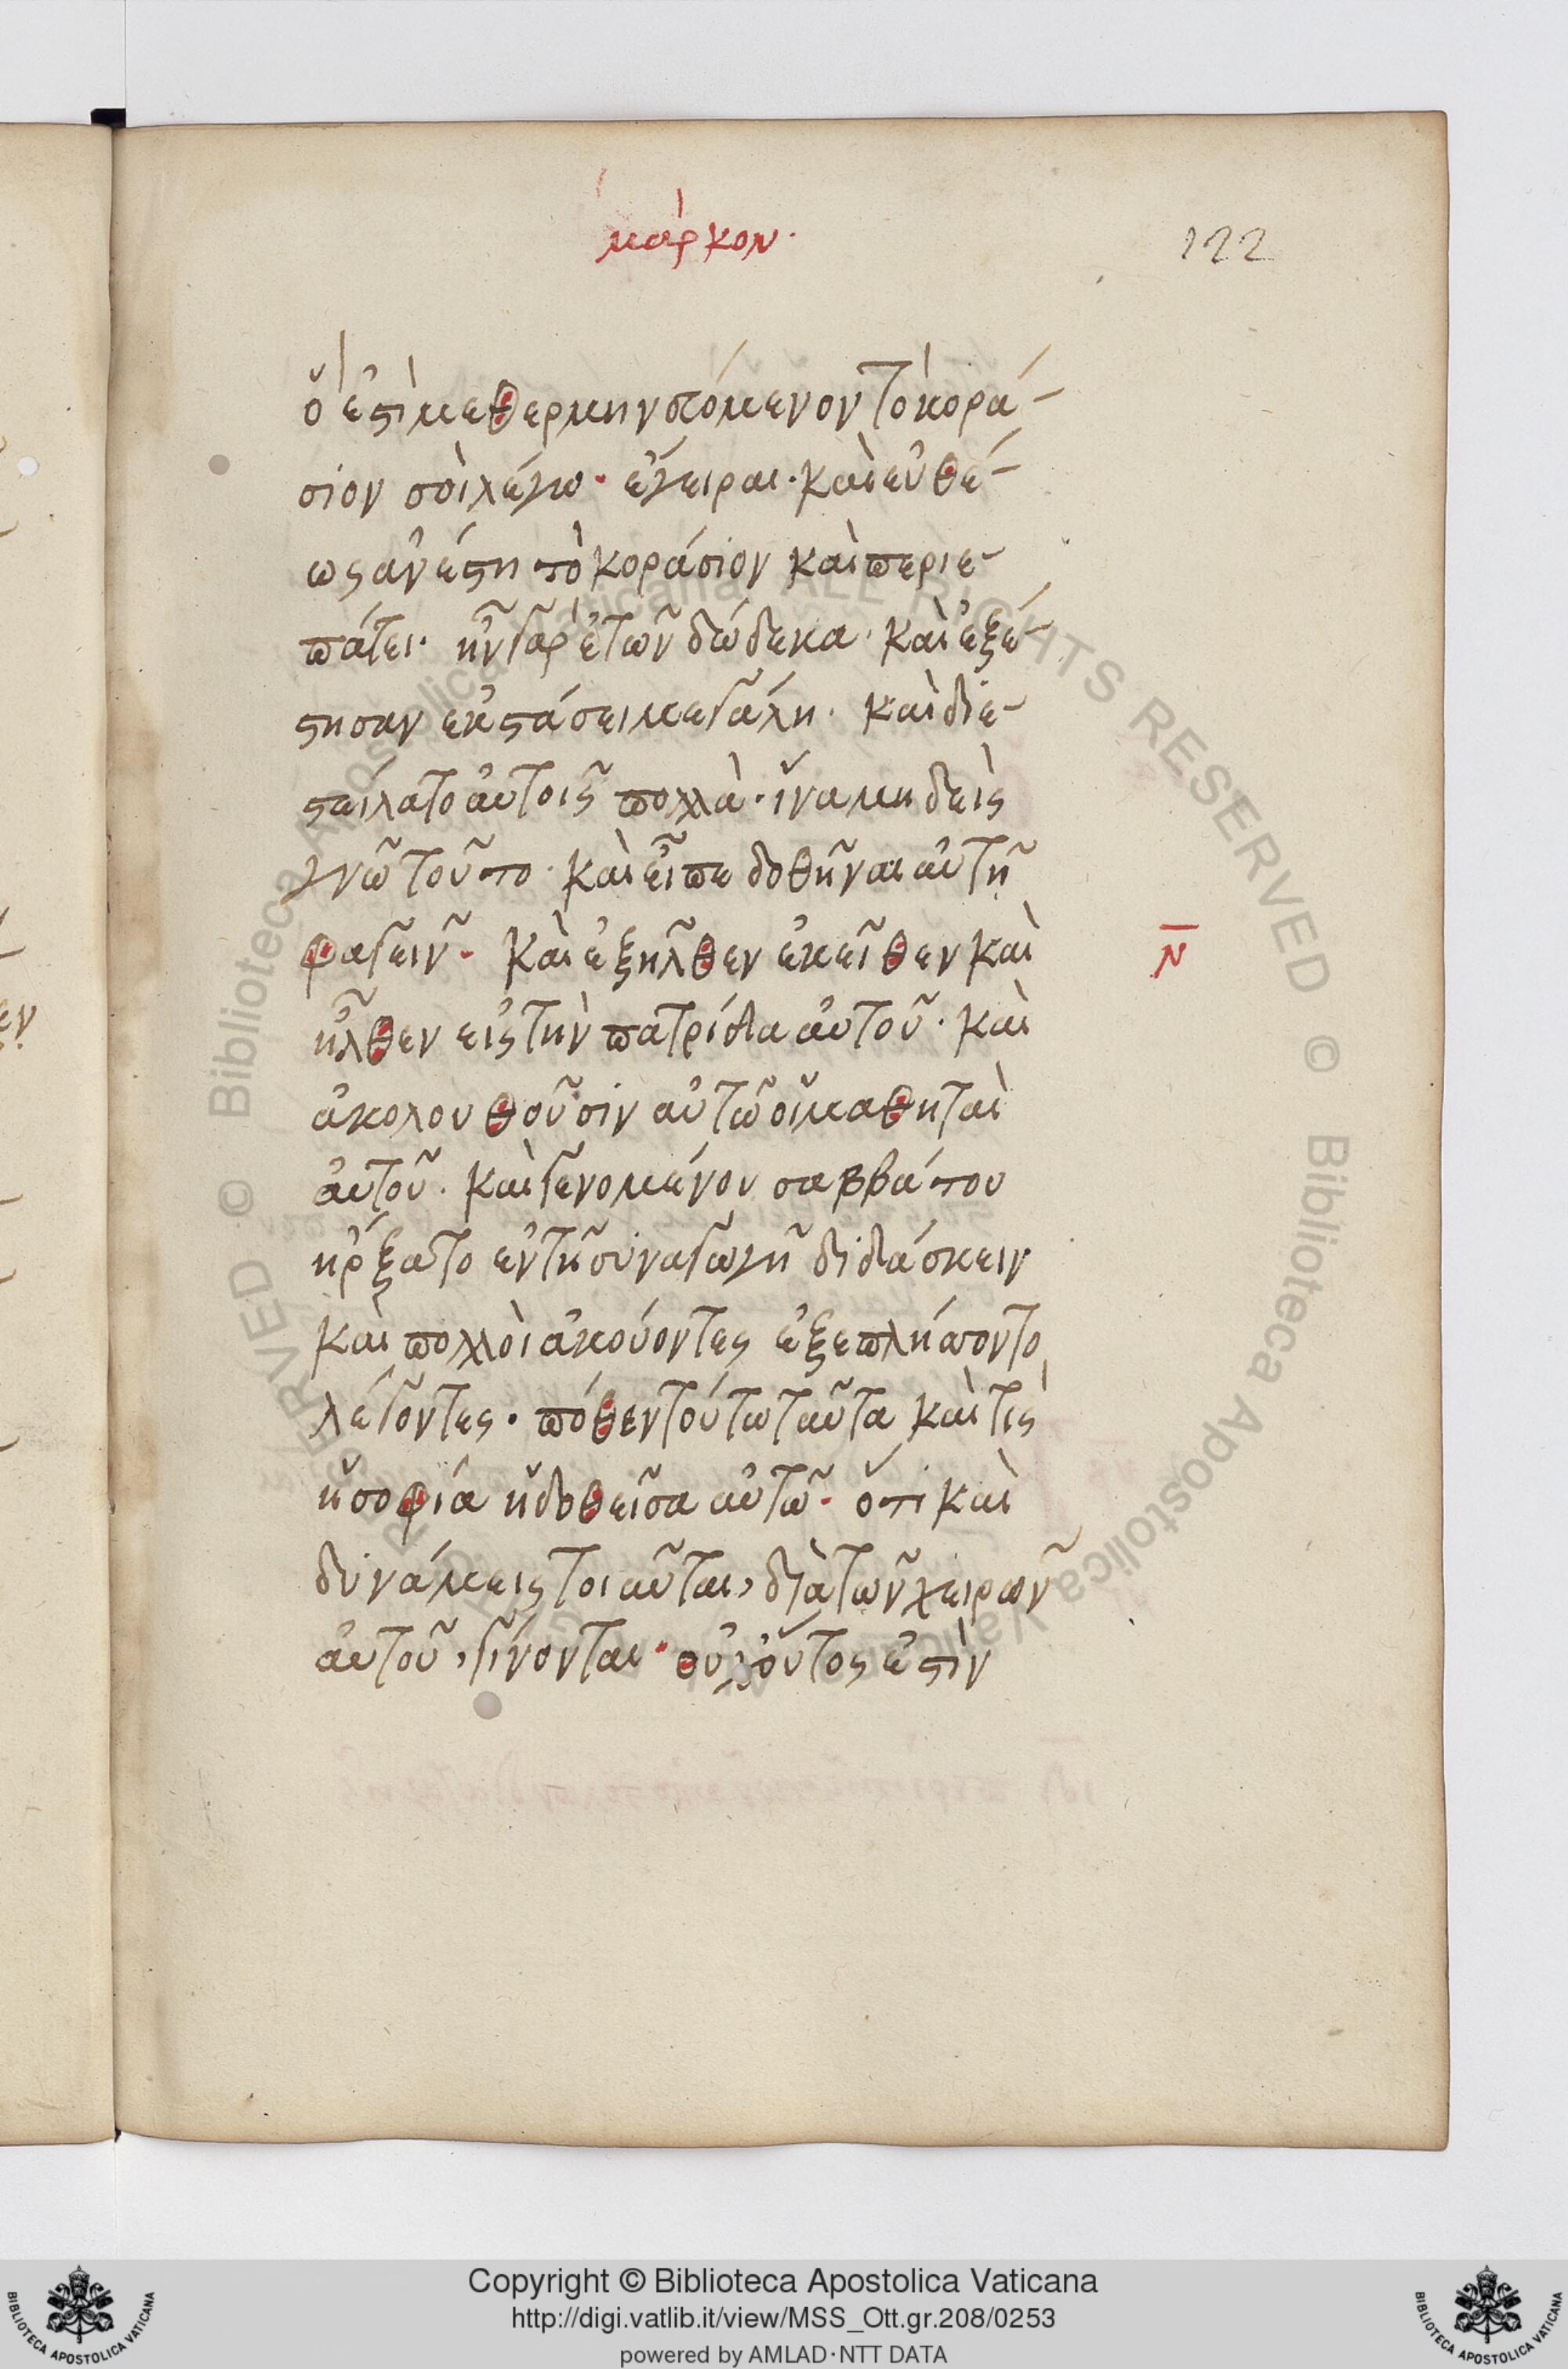 μάρκον·
122
ὅ ἐστὶ μεθερμηνευόμενον τὸ κορά-
σιον σοὶ λέγω· ἔγειραι· καὶ εὐθέ-
ως ἀνέστη τὸ κοράσιον καὶ περιε-
πάτει· ἦν γὰρ ἐτῶν δώδεκα· καὶ ἐξέ-
στησαν ἐκστάσει μεγάλη· καὶ διε-
στείλατο αὐτοῖς πολλὰ· ἵνα μηδεὶς
γνῶ τοῦτο· καὶ εἶπε δοθῆναι αὐτῆ
φαγεῖν· καὶ ἐξῆλθεν ἐκεῖθεν καὶ
Ν
ἦλθεν εἰς τὴν πατρίδα αὐτοῦ· καὶ
ἀκολουθοῦσιν αὐτῶ οἱ μαθηταὶ
αὐτοῦ· καὶ γενομένου σαββάτου
ἤρξατο ἐν τῆ συναγωγῆ διδάσκειν
καὶ πολλοὶ ἀκούοντες ἐξεπλήττοντο
λέγοντες· πόθεν τούτω ταῦτα καὶ τίς
ἡ σοφία ἡ δοθεῖσα αὐτῶ· ὅτι καὶ
δυνάμεις τοιαῦται, διὰ τῶν χειρῶν
αὐτοῦ, γίνονται· οὐχ οὗτος ἐστὶν
Copyright © Biblioteca Apostolica Vaticana
http://digi.vatlib.it/view/MSS_Ott.gr.208/0253
powered by AMLAD·NTT DATA